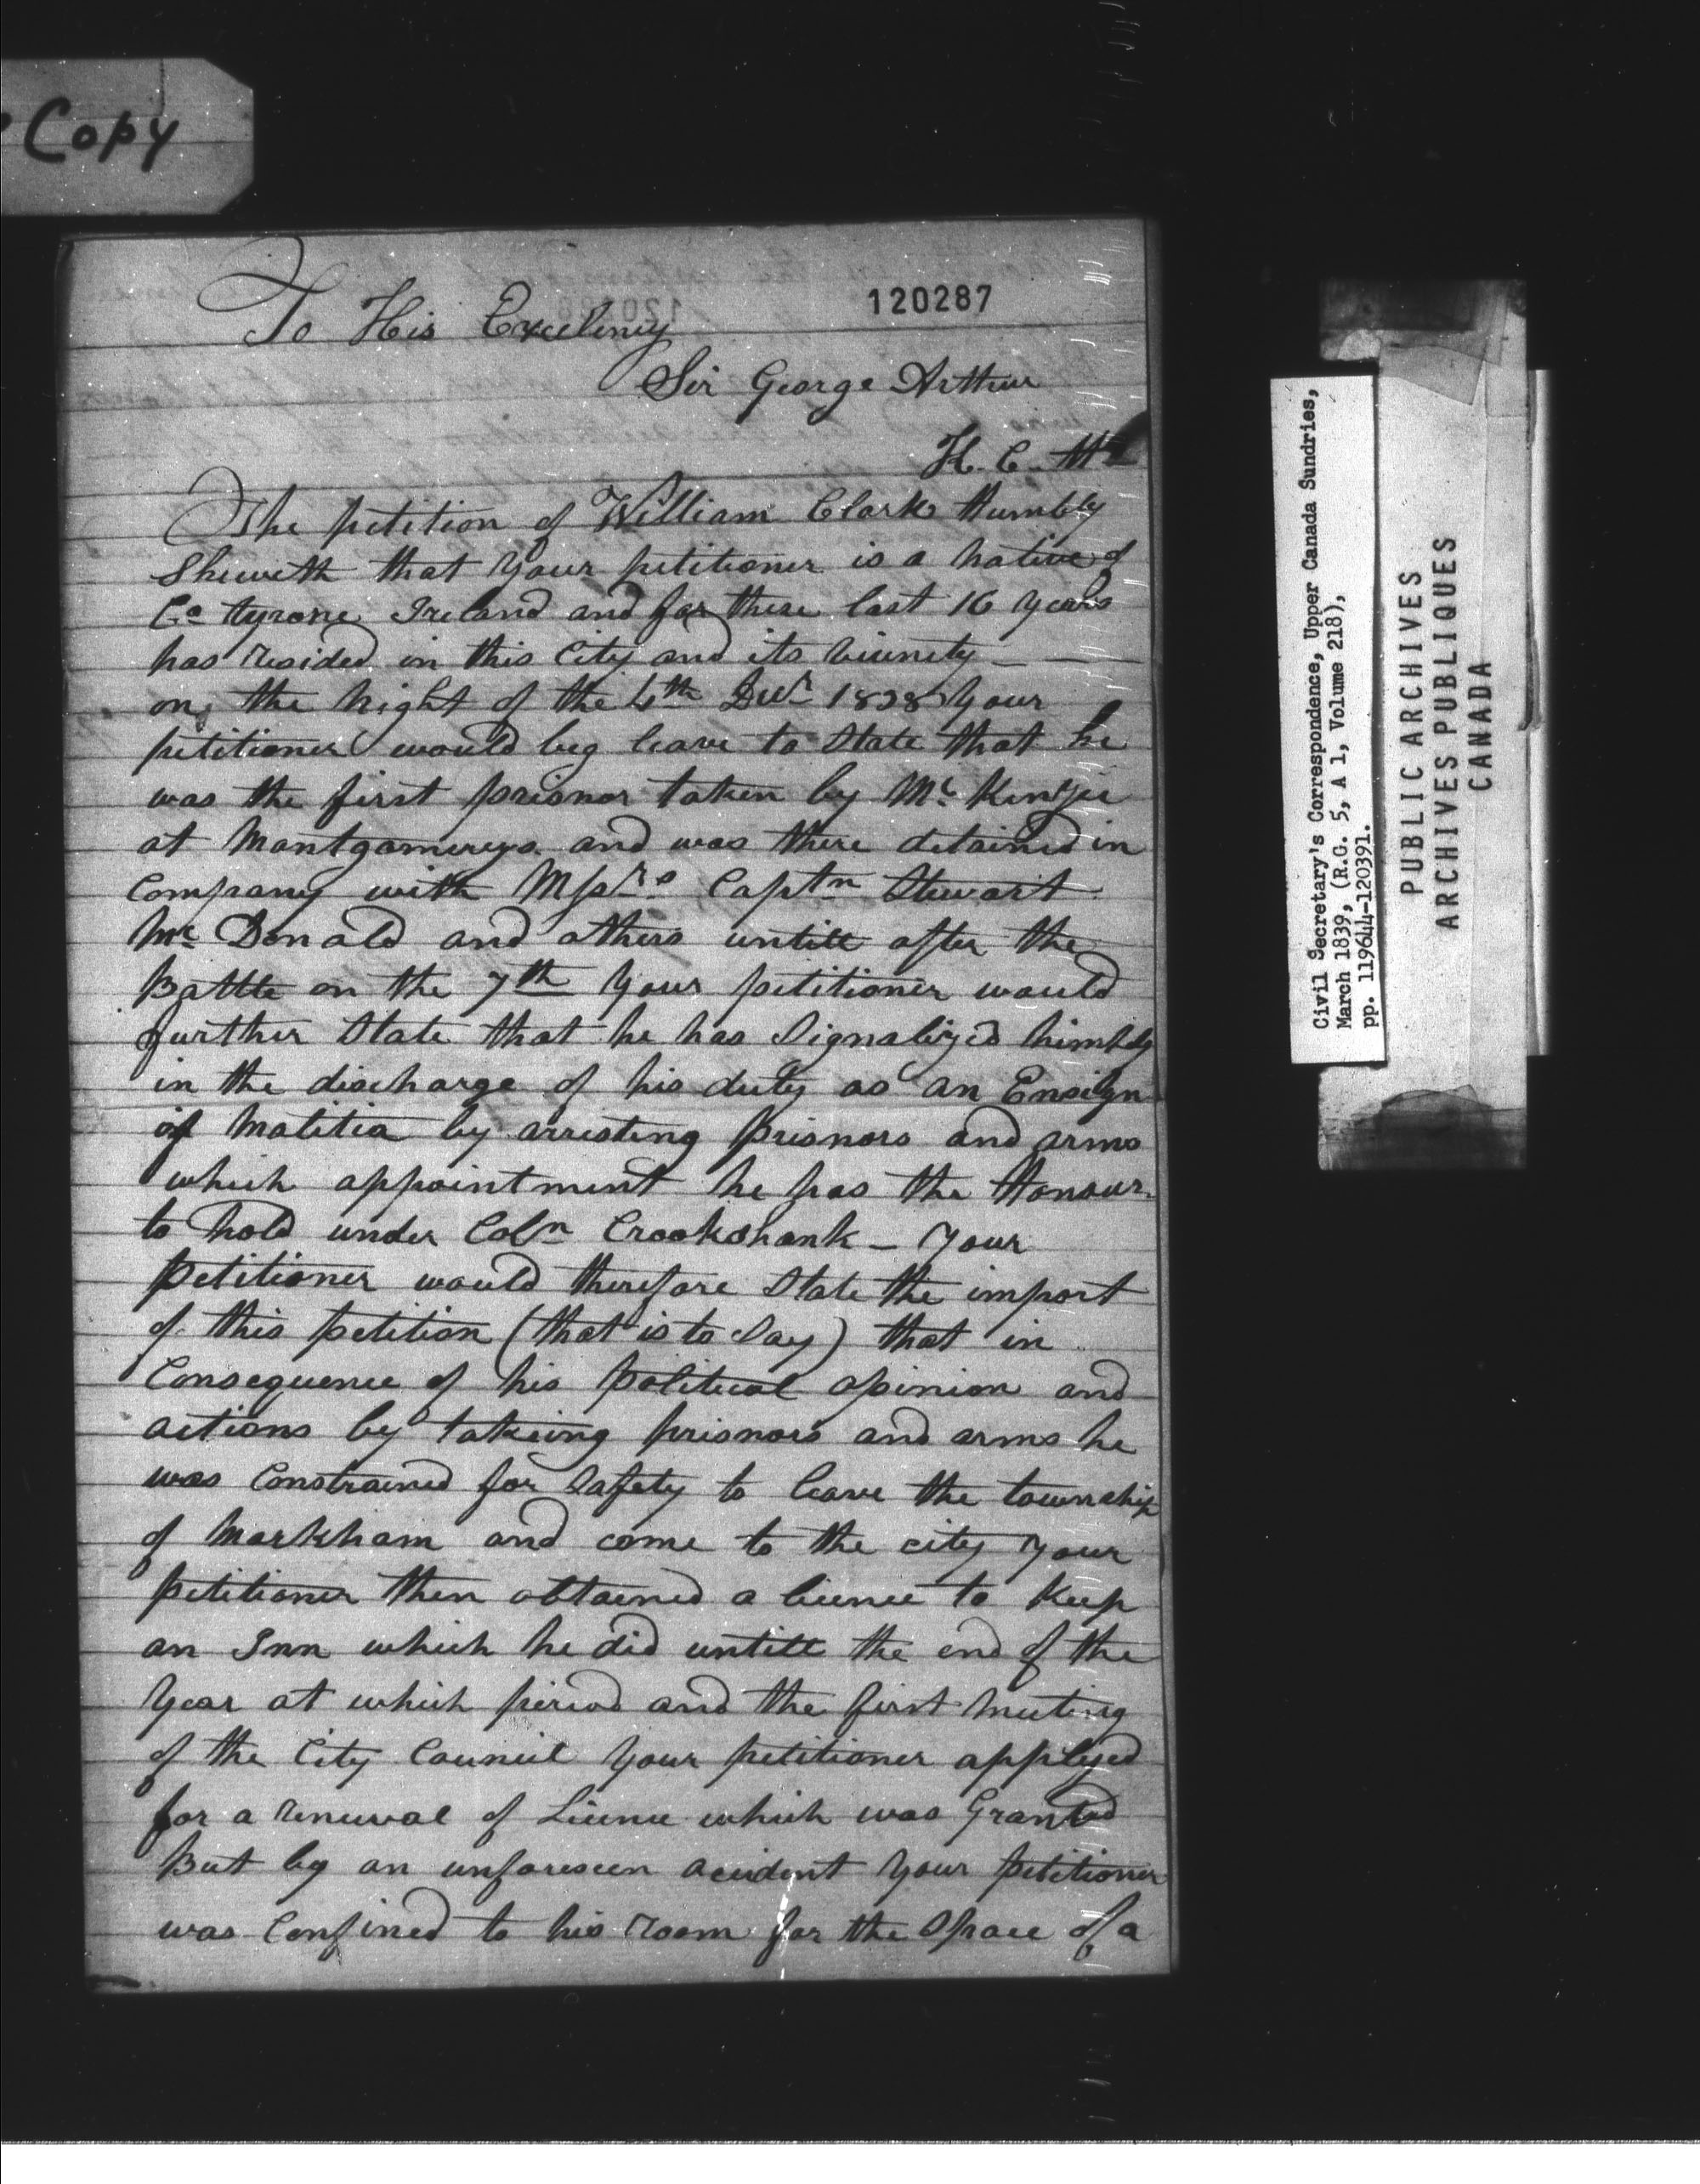 Copy
120287
To His Excelency
Sir George Arthur
K. C. H.
The petition of William Clark Humbly
Sheweth that your petitioner is a native of
Co tyrone Ireland and for these last 16 years
has resided in this City and its vicinity - -
on the night of the 4th Decr 1838 your
petitioner would beg leave to State that he
was the first prisnor taken by Mc Kenzie
at Montgomereys and was there detained in
Company with Messrs Captn Stewart
Mc Donald and others untill after the
Battle on the 7th your petitioner would
further State that he has Signalized himself
in the discharge of his duty as an Ensign
of Malitia by arresting prisnors and arms
which appointment he has the Honour
to hold under Coln Crookshank - your
petitioner would therefore State the import
of this petition (that is to Say) that in
Consequence of his political opinion and
actions by takeing prisnors and arms he
was Constrained for Safety to leave the township
of Markham and come to the city your
petitioner then obtained a licence to keep
an Inn which he did untill the end of the
year at which period and the first meeting
of the City Council your petitioner applyed
for a renewal of Licence which was Granted
But by an unforeseen accident your petitioner
was Confined to his room for the Space of a
Civil Secretary's Correspondence, Upper Canada Sundries,
March 1839, (R.G. 5, A 1, Volume 218),
pp. 119644-120391.
PUBLIC ARCHIVES
ARCHIVES PUBLIQUES
CANADA